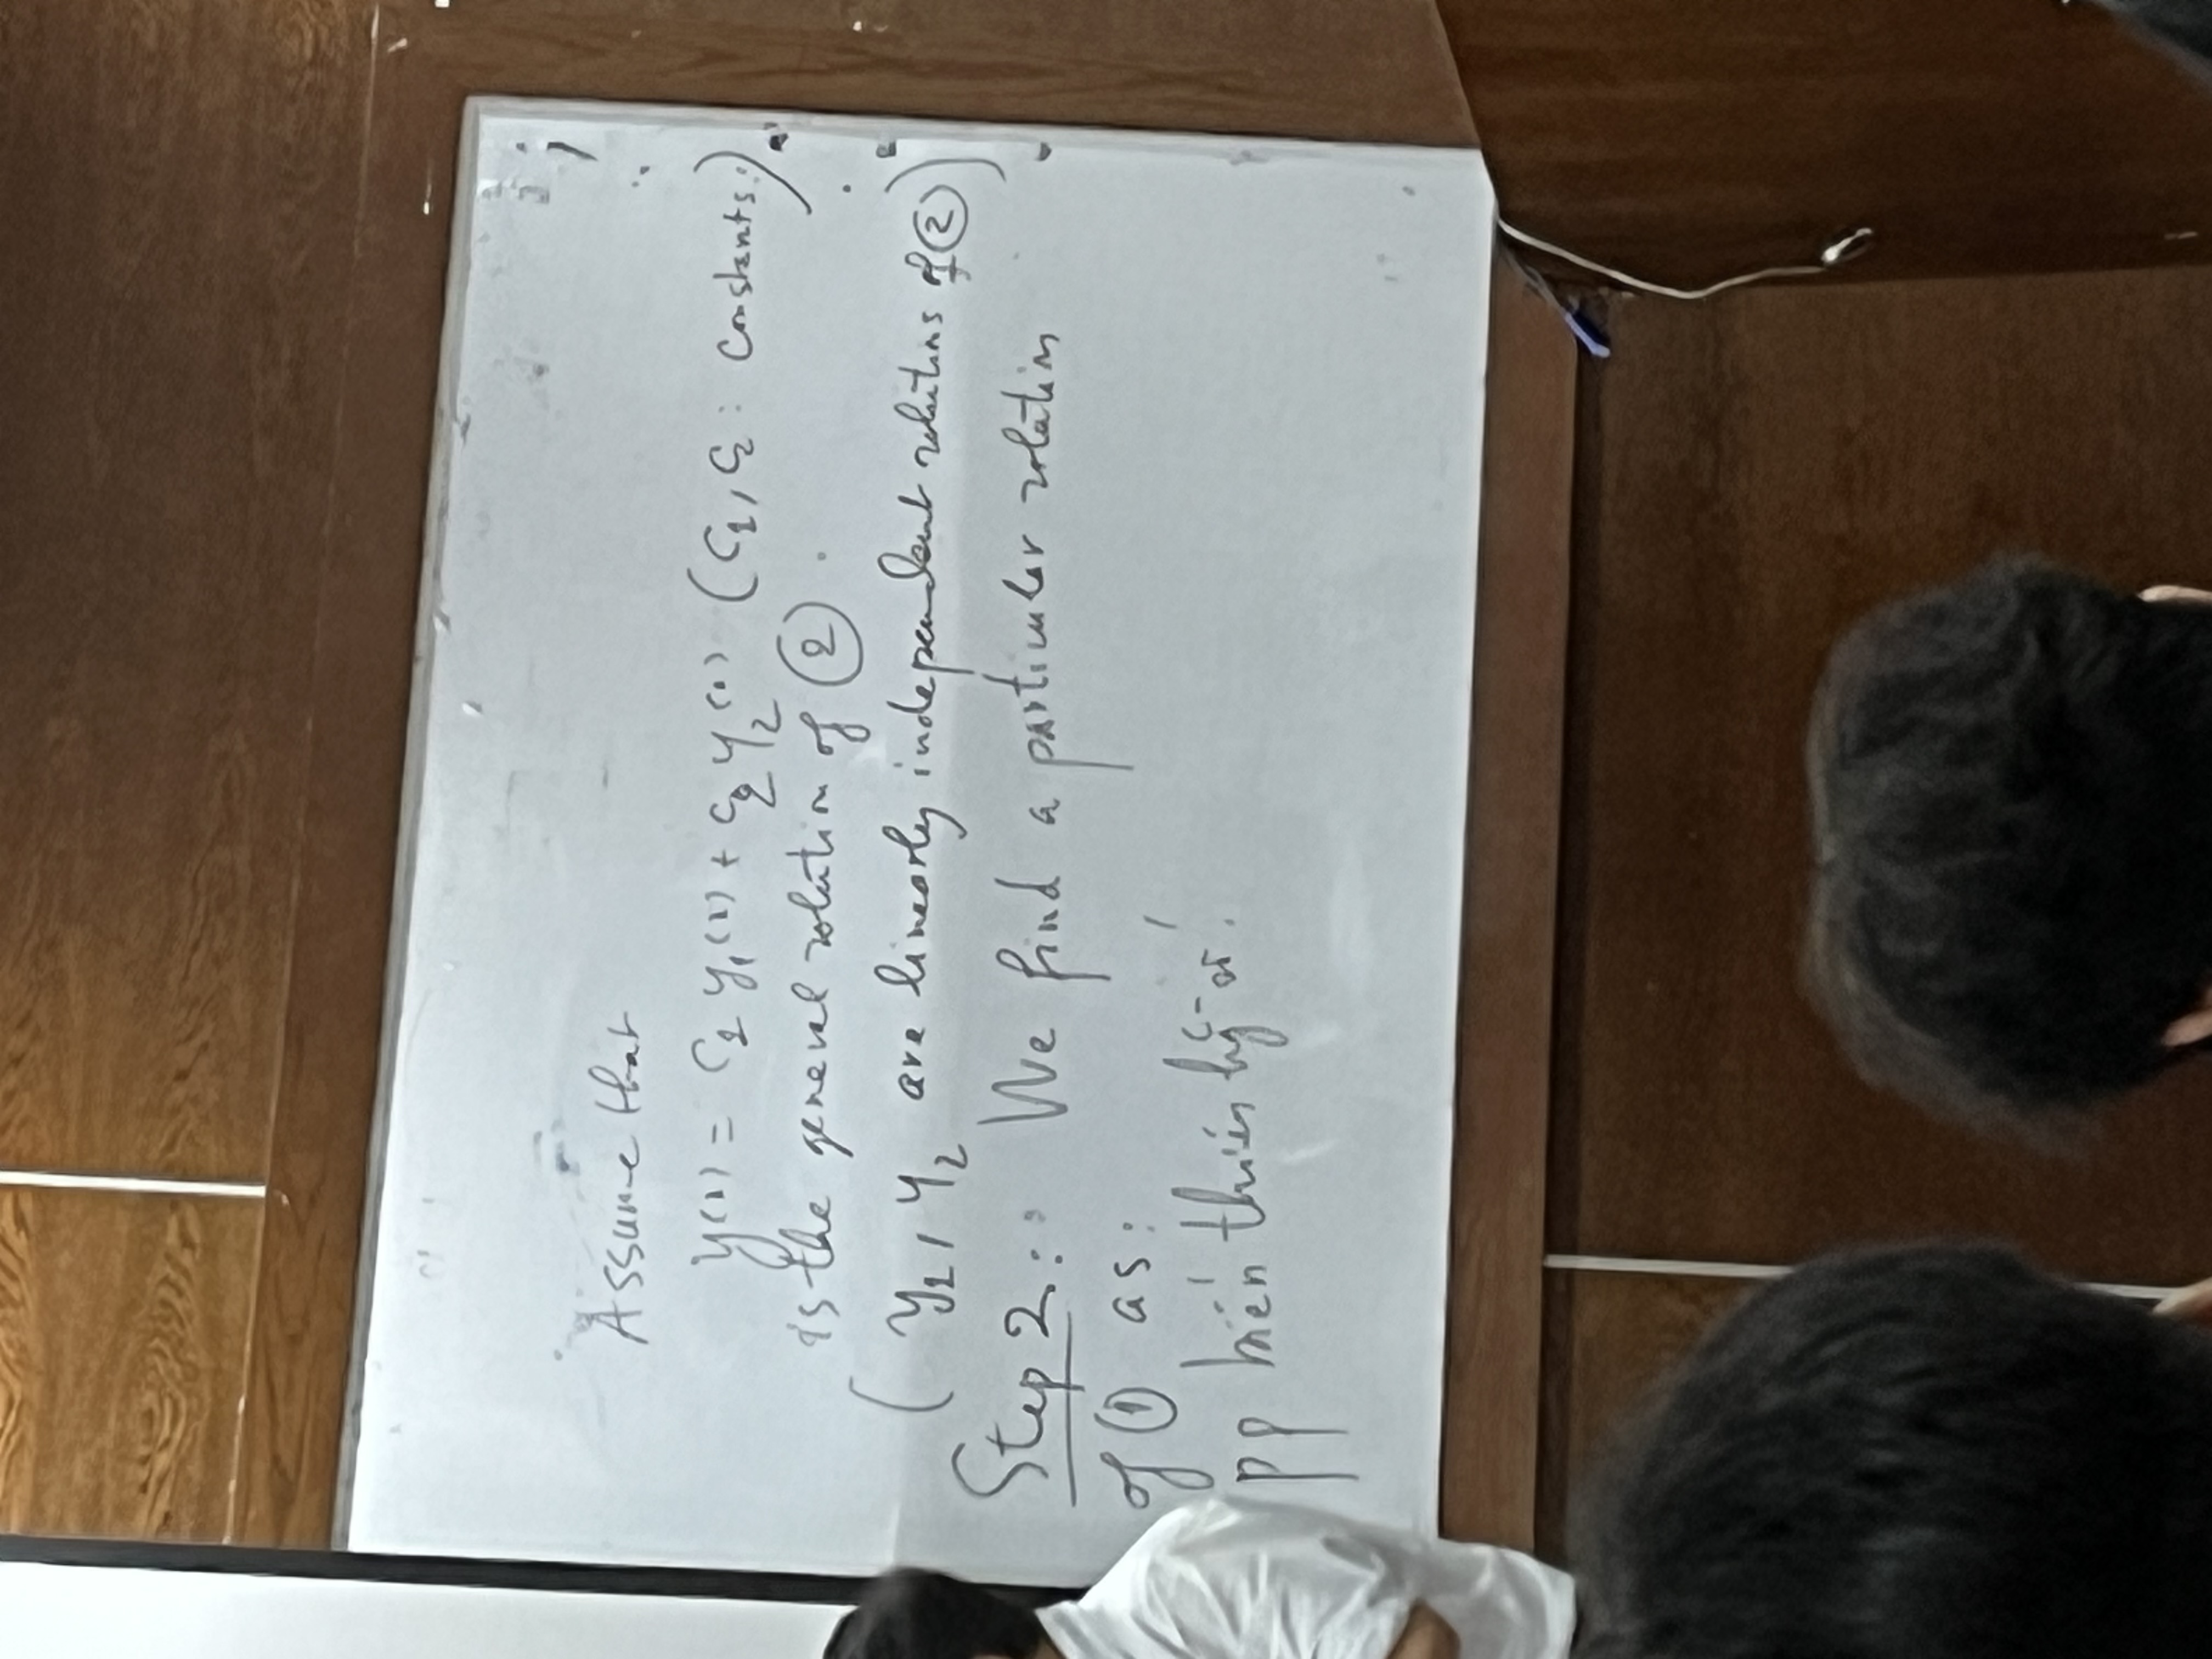 Assume that
y(x) = C₁ y₁(x) + C₂ y₂(x) (C₁, C₂ : constants.)
is the general solution of ② .
( y₁, y₂ are linearly independent solutions of ②)
Step 2: We find a particular solution
of ① as:
pp biến thiên hằng số!